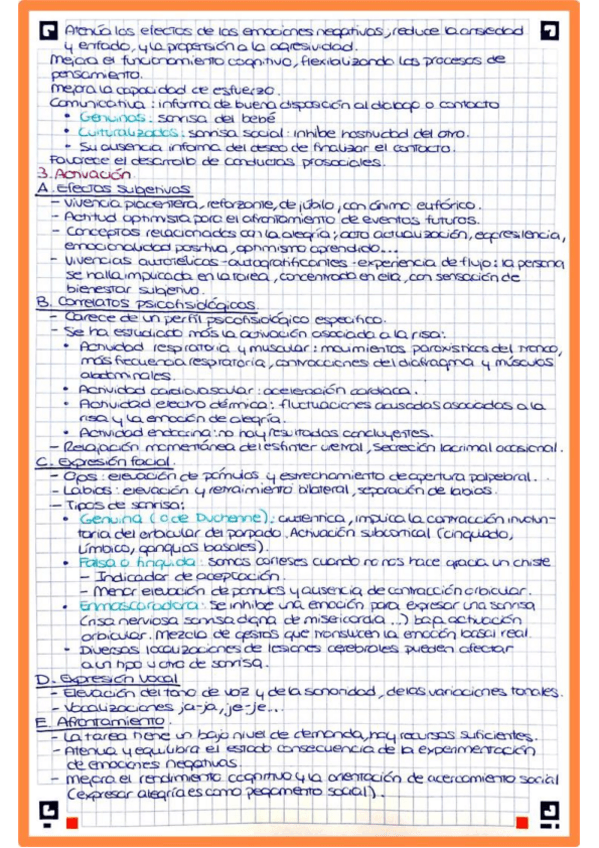 Atenúa los efectos de las emociones negativas, reduce la ansiedad
y enfado, y la propensión a la agresividad.
Mejora el funcionamiento cognitivo, flexibilizando los procesos de
pensamiento.
Mejora la capacidad de esfuerzo.
Comunicativa: informa de buena disposición al diálogo o contacto
• Genuinos: sonrisa del bebé
• Culturalizados: sonrisa social: inhibe hostilidad del otro.
• Su ausencia informa del deseo de finalizar el contacto.
Favorece el desarrollo de conductas prosociales.
3. Activación
A. Efectos subjetivos
- Vivencia placentera, reforzante, de júbilo, con ánimo eufórico.
- Actitud optimista para el afrontamiento de eventos futuros.
- Conceptos relacionados con la alegría; auto actualización,
emocionalidad positiva, optimismo aprendido...
- Vivencias autotélicas - autogratificantes - experiencia de flujo: la persona
se halla implicada en la tarea, concentrada en ella, con sensación de
bienestar subjetivo.
B. Correlatos psicofisiológicos
- Carece de un perfil psicofisiológico específico.
- Se ha estudiado más la activación asociada a la risa:
• Actividad respiratoria y muscular: movimientos paroxísticos del tronco,
más frecuencia respiratoria, contracciones del diafragma y músculos
abdominales.
• Actividad cardiovascular: aceleración cardiaca.
• Actividad electro dérmica: fluctuaciones acusadas asociadas a la
risa y la emoción de alegría.
• Actividad endocrina: no hay resultados concluyentes.
- Relajación momentánea del esfínter uretral, secreción lacrimal ocasional.
C. Expresión facial
- Ojos: elevación de pómulos y estrechamiento de apertura palpebral.
- Labios: elevación y retraimiento bilateral, separación de labios.
- Tipos de sonrisa:
• Genuina (o de Duchenne): auténtica, implica la contracción involun-
taria del orbicular del parpado. Activación subcortical (cingulado,
límbico, ganglios basales).
• Falsa o fingida: Somos corteses cuando no nos hace gracia un chiste
- Indicador de aceptación.
- Menor elevación de pomulos y ausencia de contracción orbicular.
• Enmascaradora: Se inhibe una emoción para expresar una sonrisa
(risa nerviosa sonrisa digna de misericordia...) baja activación
orbicular. Mezcla de gestos que translucen la emoción basal real.
• Diversas localizaciones de lesiones cerebrales pueden afectar
a un tipo u otro de sonrisa.
D. Expresión vocal
- Elevación del tono de voz y de la sonoridad, de las variaciones tonales.
- Vocalizaciones ja-ja, je-je...
E. Afrontamiento
- La tarea tiene un bajo nivel de demanda, hay recursos suficientes.
- Atenua y equilibra el estado consecuencia de la experimentación
de emociones negativas.
- Mejora el rendimiento cognitivo y la orientación de acercamiento social
(expresar alegría es como pegamento social).